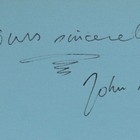 ours sincerel
John